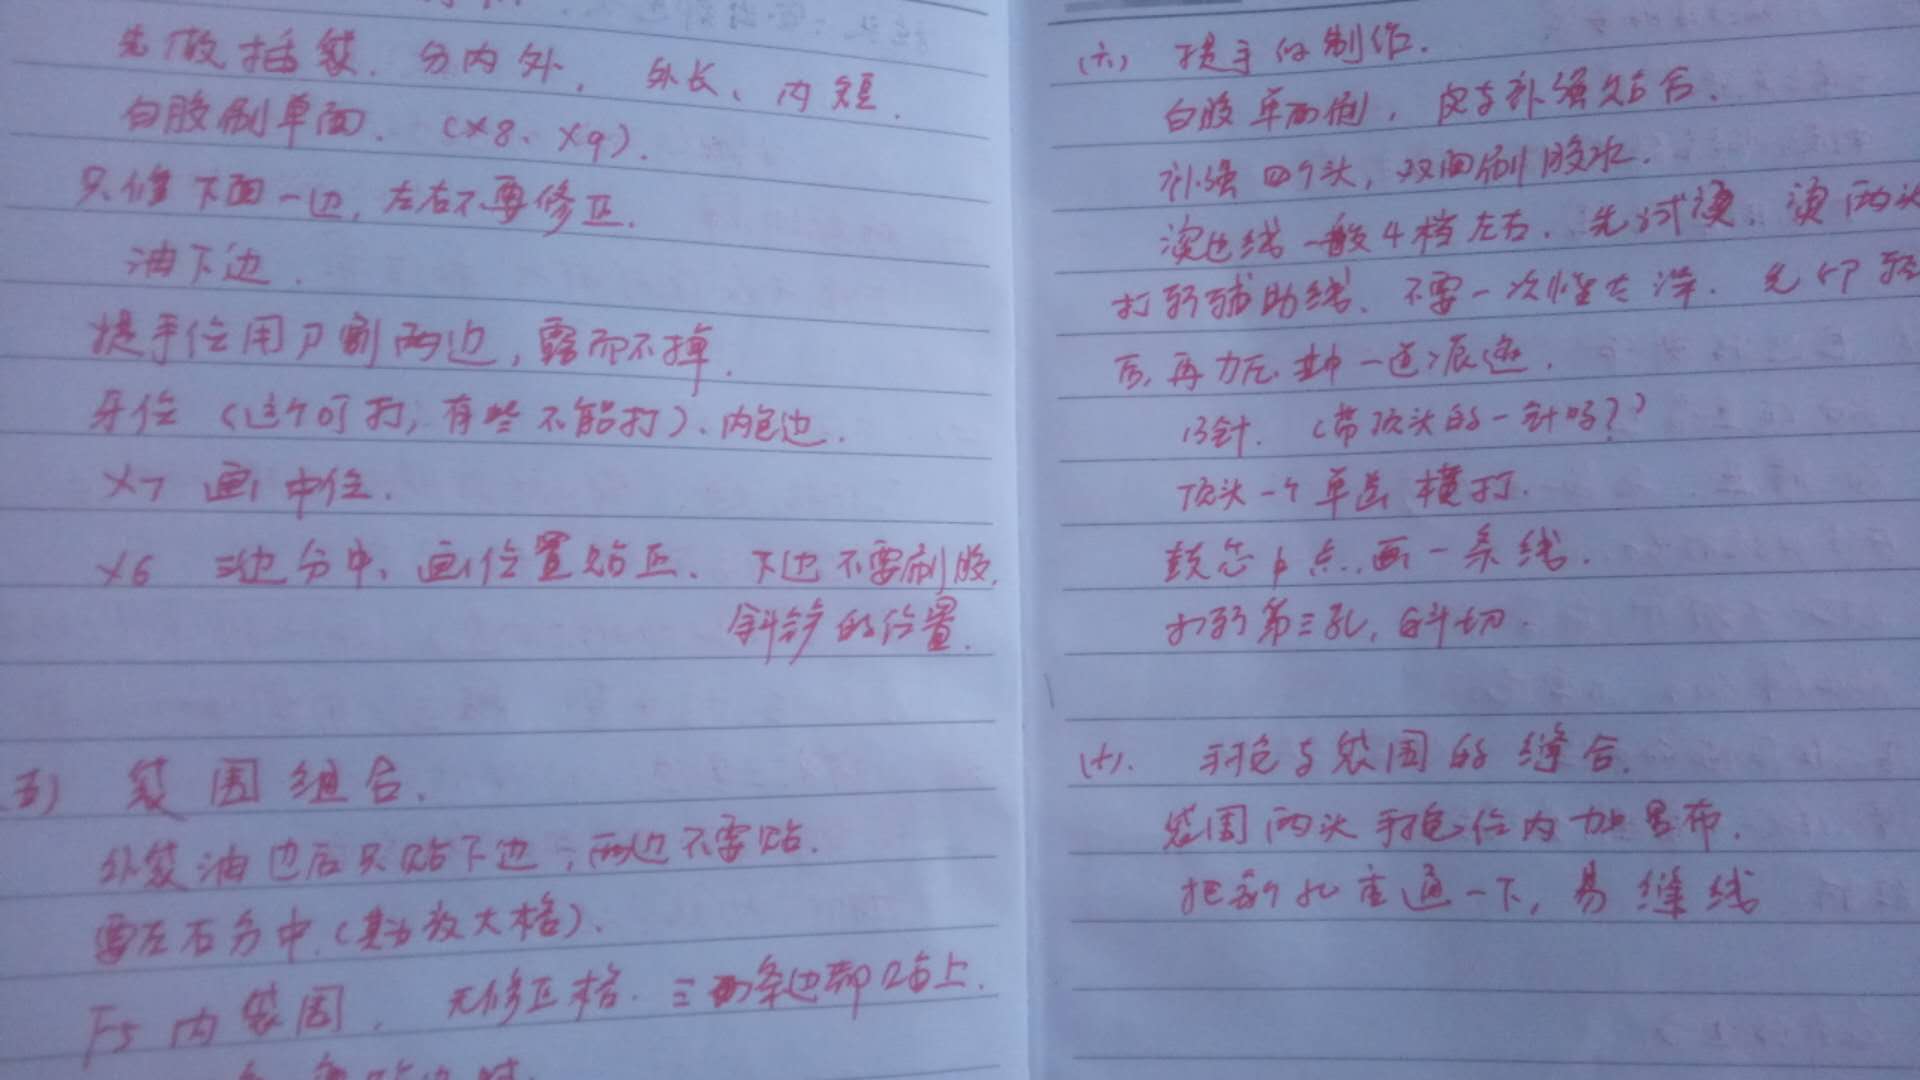 先做插袋. 分内外, 外长、内短.
白胶刷单面. (X8、X9).
只修下面一边, 左右不要修正.
油下边.
提手位用刀割两边, 露而不掉.
牙位 (这个可打, 有些不能打). 内包边.
X7 画中位.
X6 三边分中, 画位置贴正. 下边不要刷胶.
斜 的位置.
五) 袋围组合.
外袋油边后只贴下边, 两边不要贴.
要左右分中. (其为放大格).
F5 内袋围. 无修正格. 三条边都贴上.
(六) 提手的制作.
白胶单面刷, 皮与补强贴合.
补强四个头, 双面刷胶水.
烫边线一般4档左右. 先试烫. 烫两次
打斩辅助线. 不要一次性太深. 先印
后, 再加 一道 .
13针. (带顶头的一针吗?)
顶头一个单齿横打.
鼓芯 点. 画一条线.
打斩第三孔, 斜切.
(七). 手挽与袋围的缝合.
袋围两头手挽位内加 布.
把每个孔重通一下, 易缝线